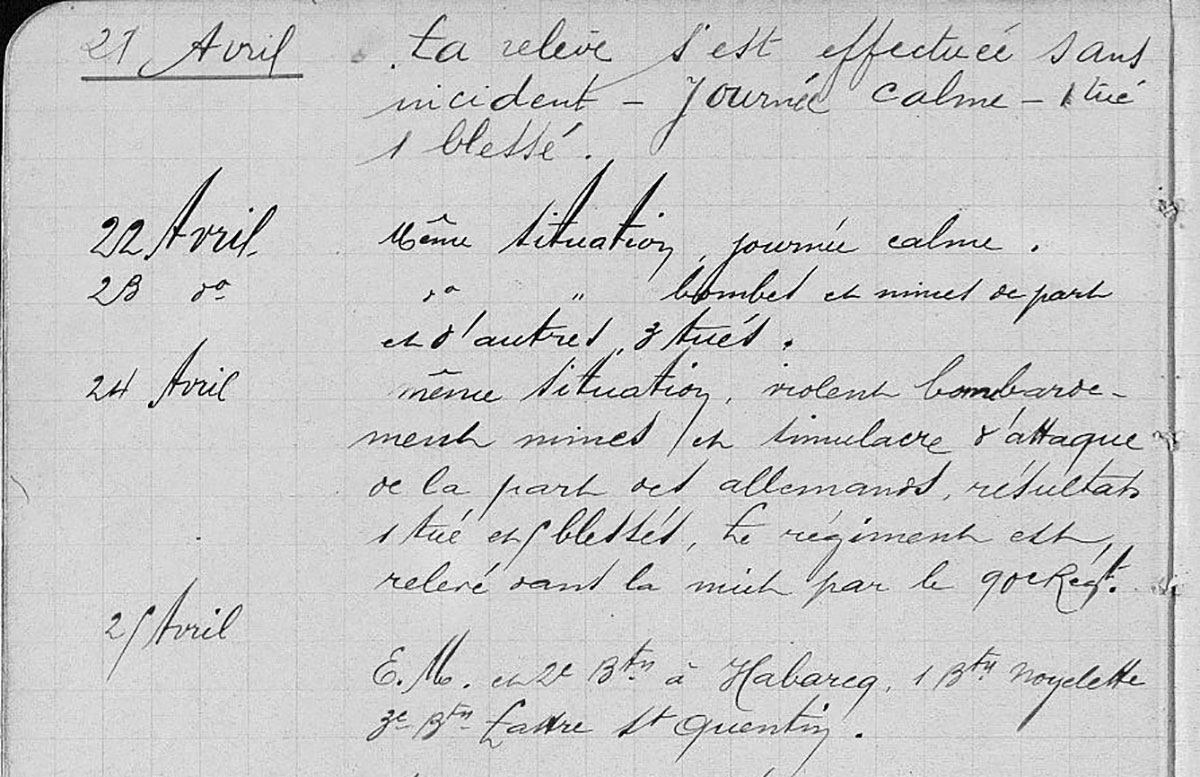 21 Avril La relève s'est effectuée sans
incident - Journée calme - 1 tué
1 blessé.
22 Avril. Même situation, journée calme.
23 do do " bombes et mines de part
et d'autres, 3 tués.
24 Avril même situation, violent bombarde-
ment mines et simulacre d'attaque
de la part des allemands, résultats
1 tué et 5 blessés, Le régiment est,
relevé dans la nuit par le 90e Régt.
25 Avril
E.M. et 2e Btn à Habarcq, 1 Btn Noyelette
3e Btn Lattre St Quentin.